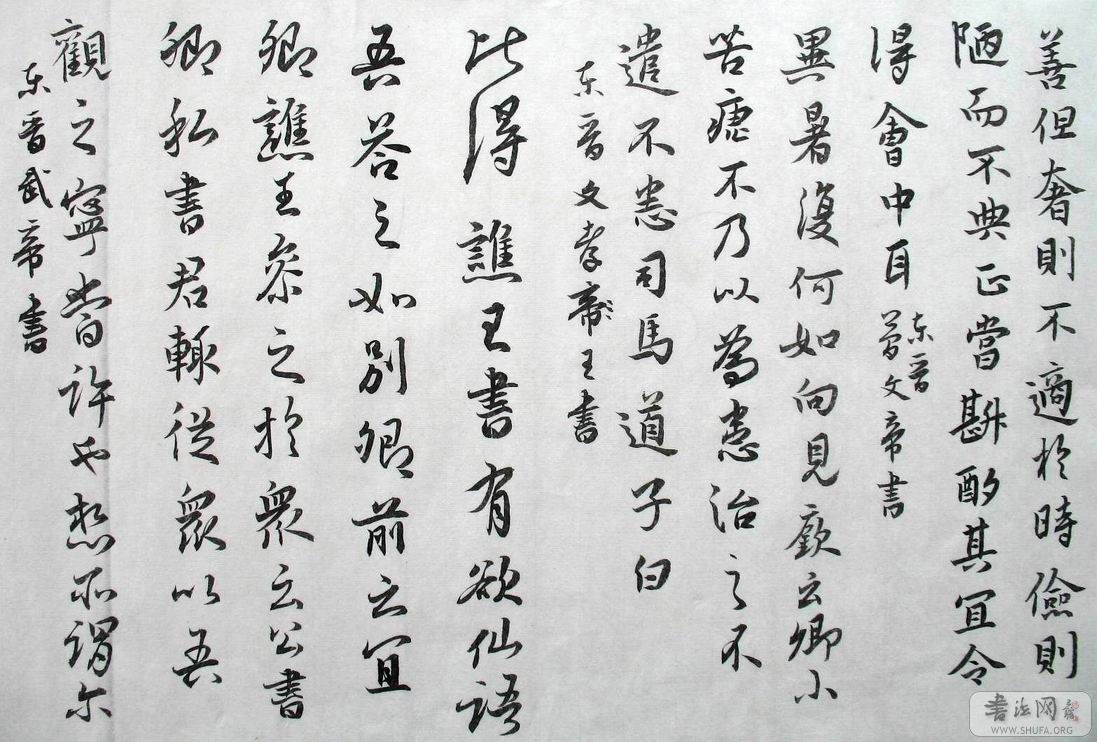 善但奢則不適於時儉則
陋而不典正當斟酌其宜令
得會中耳
东晉
簡文帝書
異暑復何如向見歡云卿小
苦瘧不乃以為患治之不
遣不悉司馬道子白
东晉文孝帝王書
比得譙王書有欲仙語
吾答之如別卿前云宜
卿譙王參之於眾云公書
卿私書君輒從眾以吾
觀之寧當許也想所謂尔
东晉武帝書
书法网
WWW.SHUFA.ORG